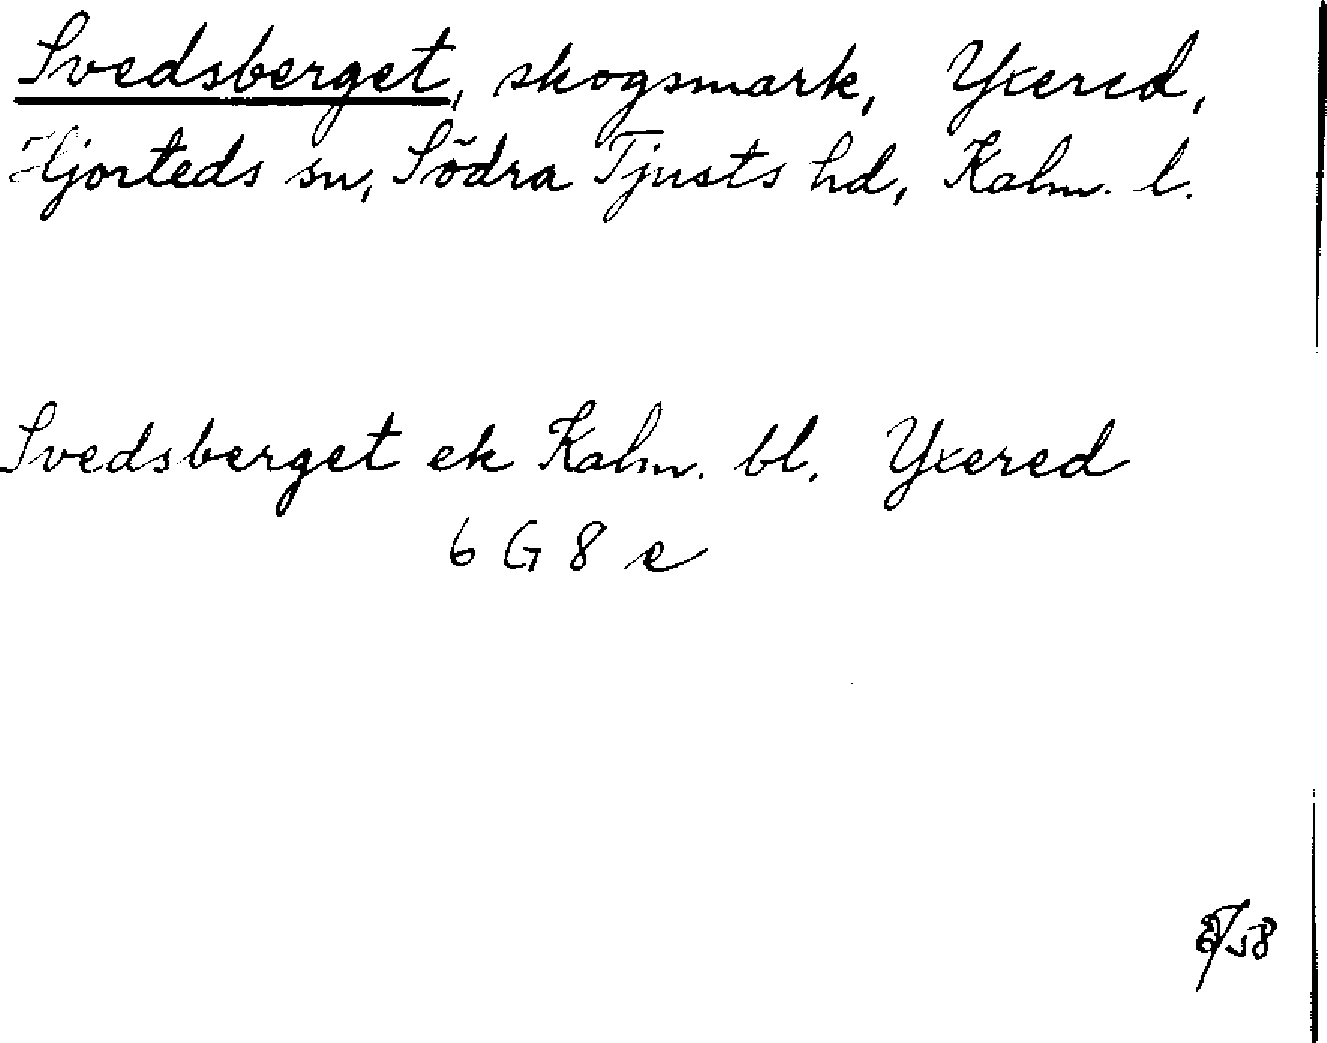 Svedsberget, skogsmark, Yxered,
Hjorteds sn, Södra Tjusts hd, Kalm. l.
Svedsberget ek Kalm. bl. Yxered
6 G 8 e